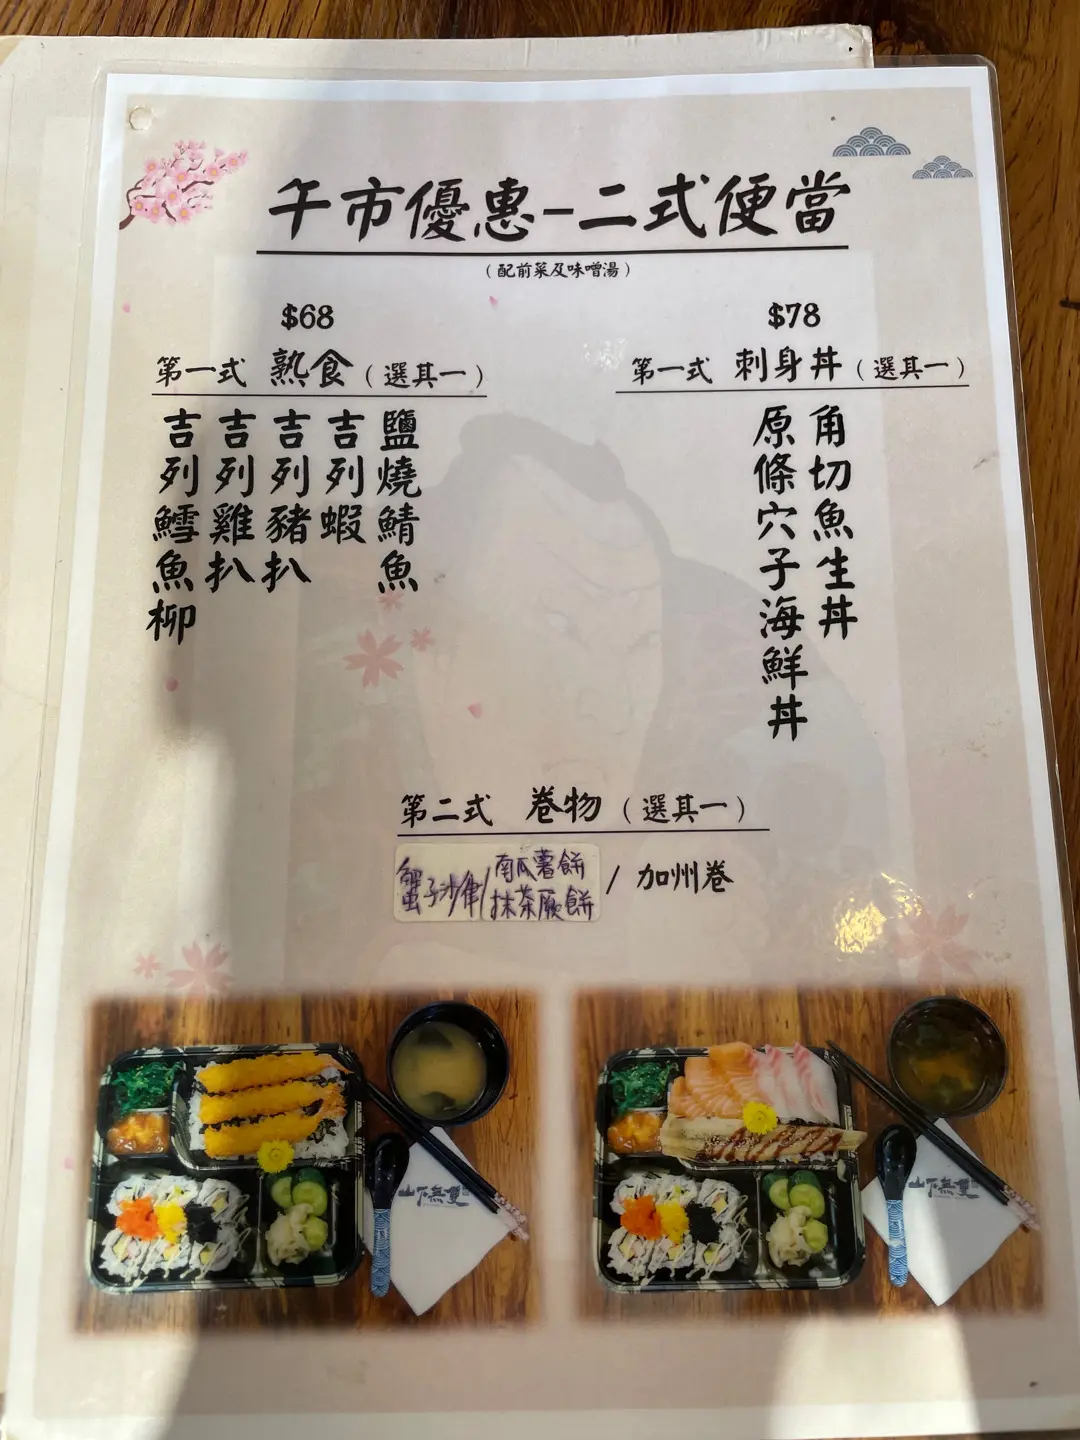 午市優惠-二式便當
(配前菜及味噌湯)
$68
第一式 熟食(選其一)
鹽燒鯖魚
吉列蝦
吉列豬扒
吉列雞扒
吉列鱈魚柳
$78
第一式 刺身丼(選其一)
角切魚生丼
原條穴子海鮮丼
第二式 卷物(選其一)
蟹子沙律/南瓜薯餅 / 加州卷
抹茶厥餅
山下無雙
山下無雙